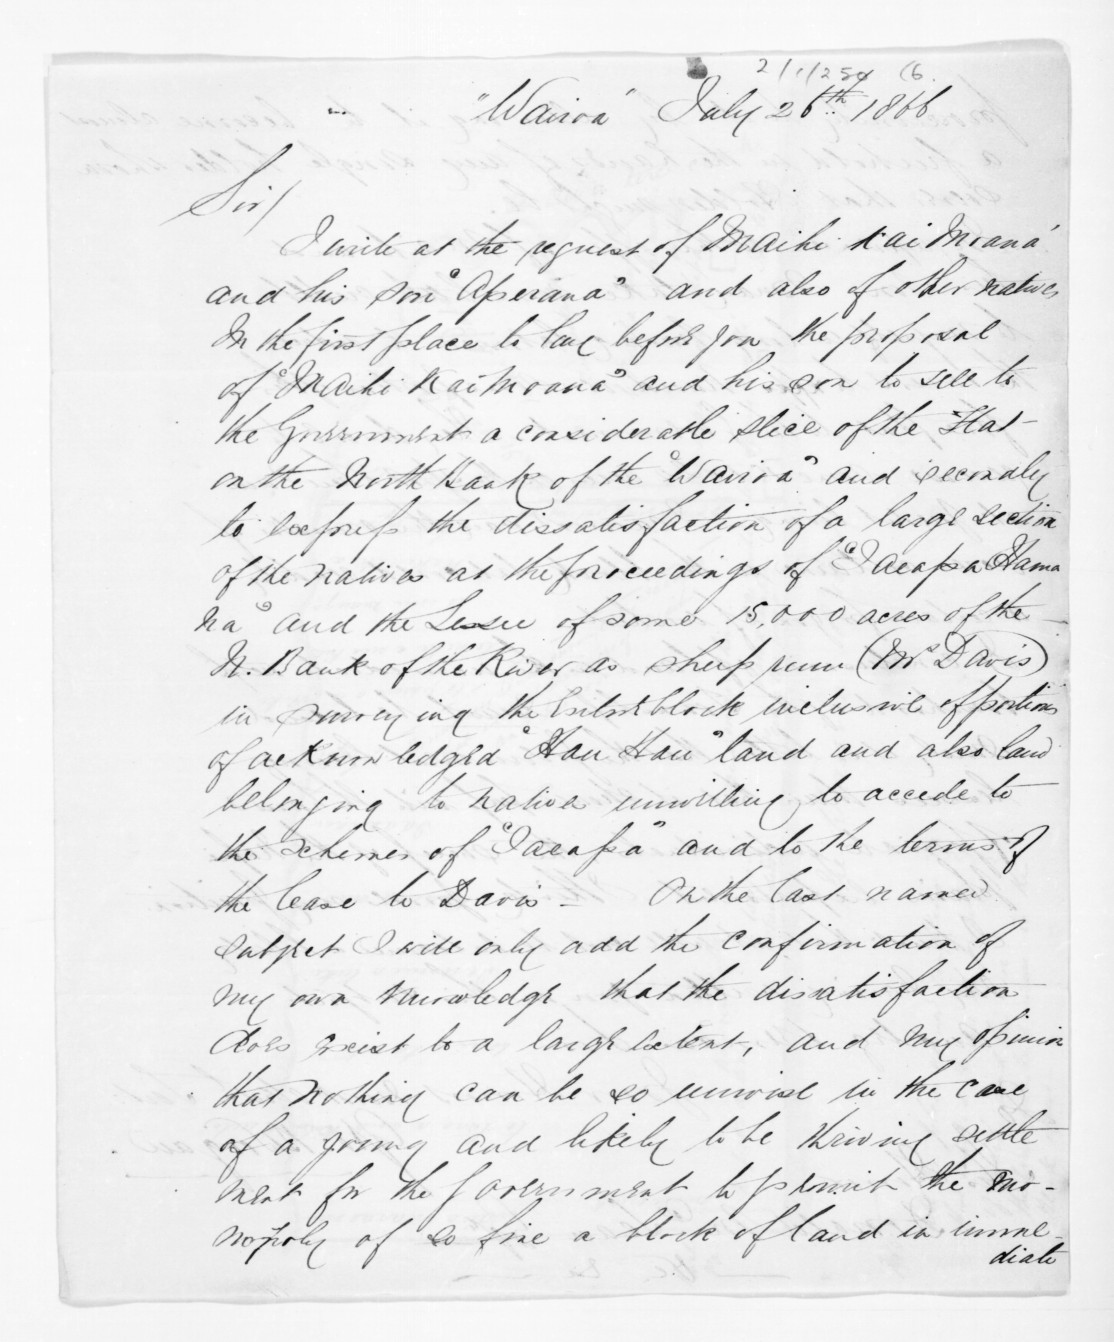 "Wairoa" July 26th 1866
Sir/
I write at the request of Maihi Kai Moana
and his son "Aperana" and also of other natives
In the first place to lay before you the proposal
of "Maihi Kai Moana" and his son to sell to
the Government a considerable slice of the Flat
on the North Bank of the "Wairoa" and secondly
to express the dissatisfaction of a large section
of the natives at the proceedings of "Ihaka Hama
na" and the Lessee of some 15,000 acres of the
N. Bank of the River as sheep run (Mr Davis)
in surveying the Entire block inclusive of portions
of acknowledged "Hau Hau" land and also land
belonging to natives unwilling to accede to
the schemes of and to the terms of
the lease to Davis - On the last named
subject I will only add the confirmation of
my own knowledge that the disatisfaction
does exist to a large extent, and my opinion
that nothing can be so unwise in the case
of a young and likely to be thriving settle
ment for the Government to permit the mo-
nopoly of so fine a block of land in imme-
diate